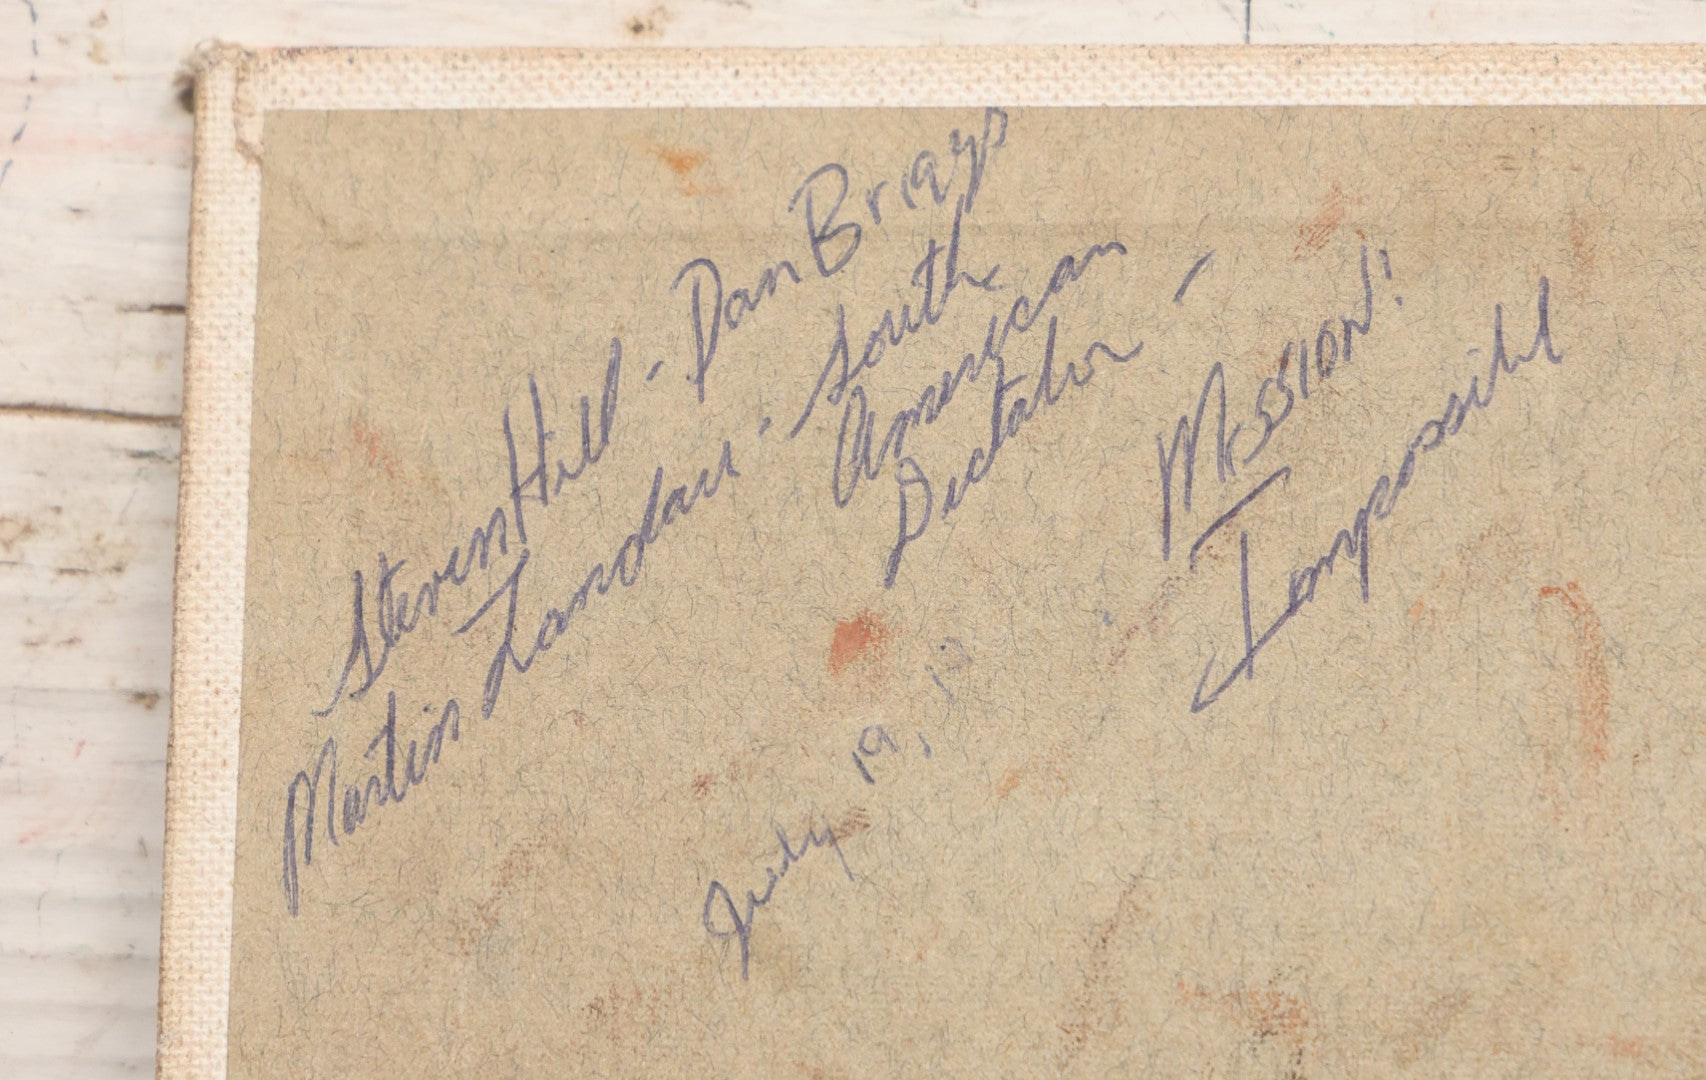 Steven Hill - Dan Briggs
Martin Landau - South
American
Dictator -
Mission!!
Impossible
July 19,